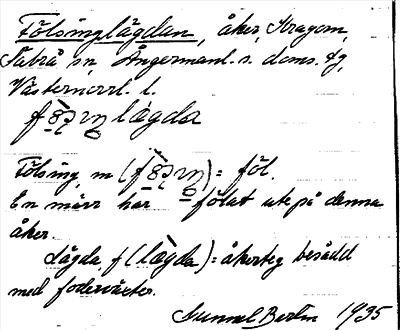 Fölsinglägdan, åker, Kragom,
Säbrå sn, Ångermanl. s. doms. tg,
Västernorrl. l.
lægda
Fölsing, m ( ) = föl.
En märr har fölat ute på denna
åker.
Lägda f (lægda) = åkerteg besådd
med foderväxter.
Gunnel Berlin 1935